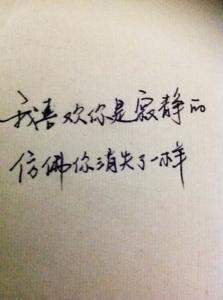 我喜欢你是寂静的
仿佛你消失了一样